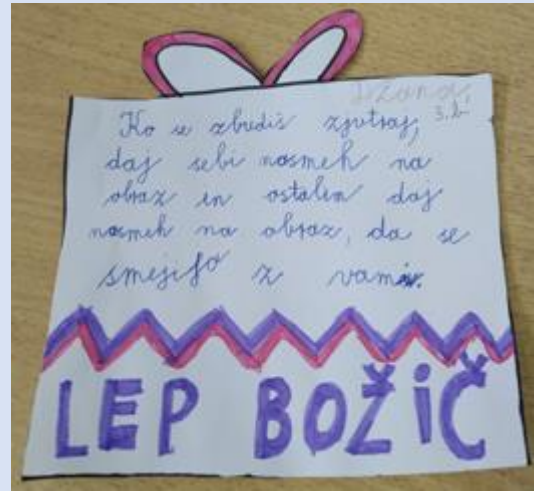 Džana, 3.b
Ko se zbudiš zjutraj,
daj sebi nasmeh na
obraz in ostalim daj
nasmeh na obraz, da se
smejijo z vami.
LEP BOŽIČ